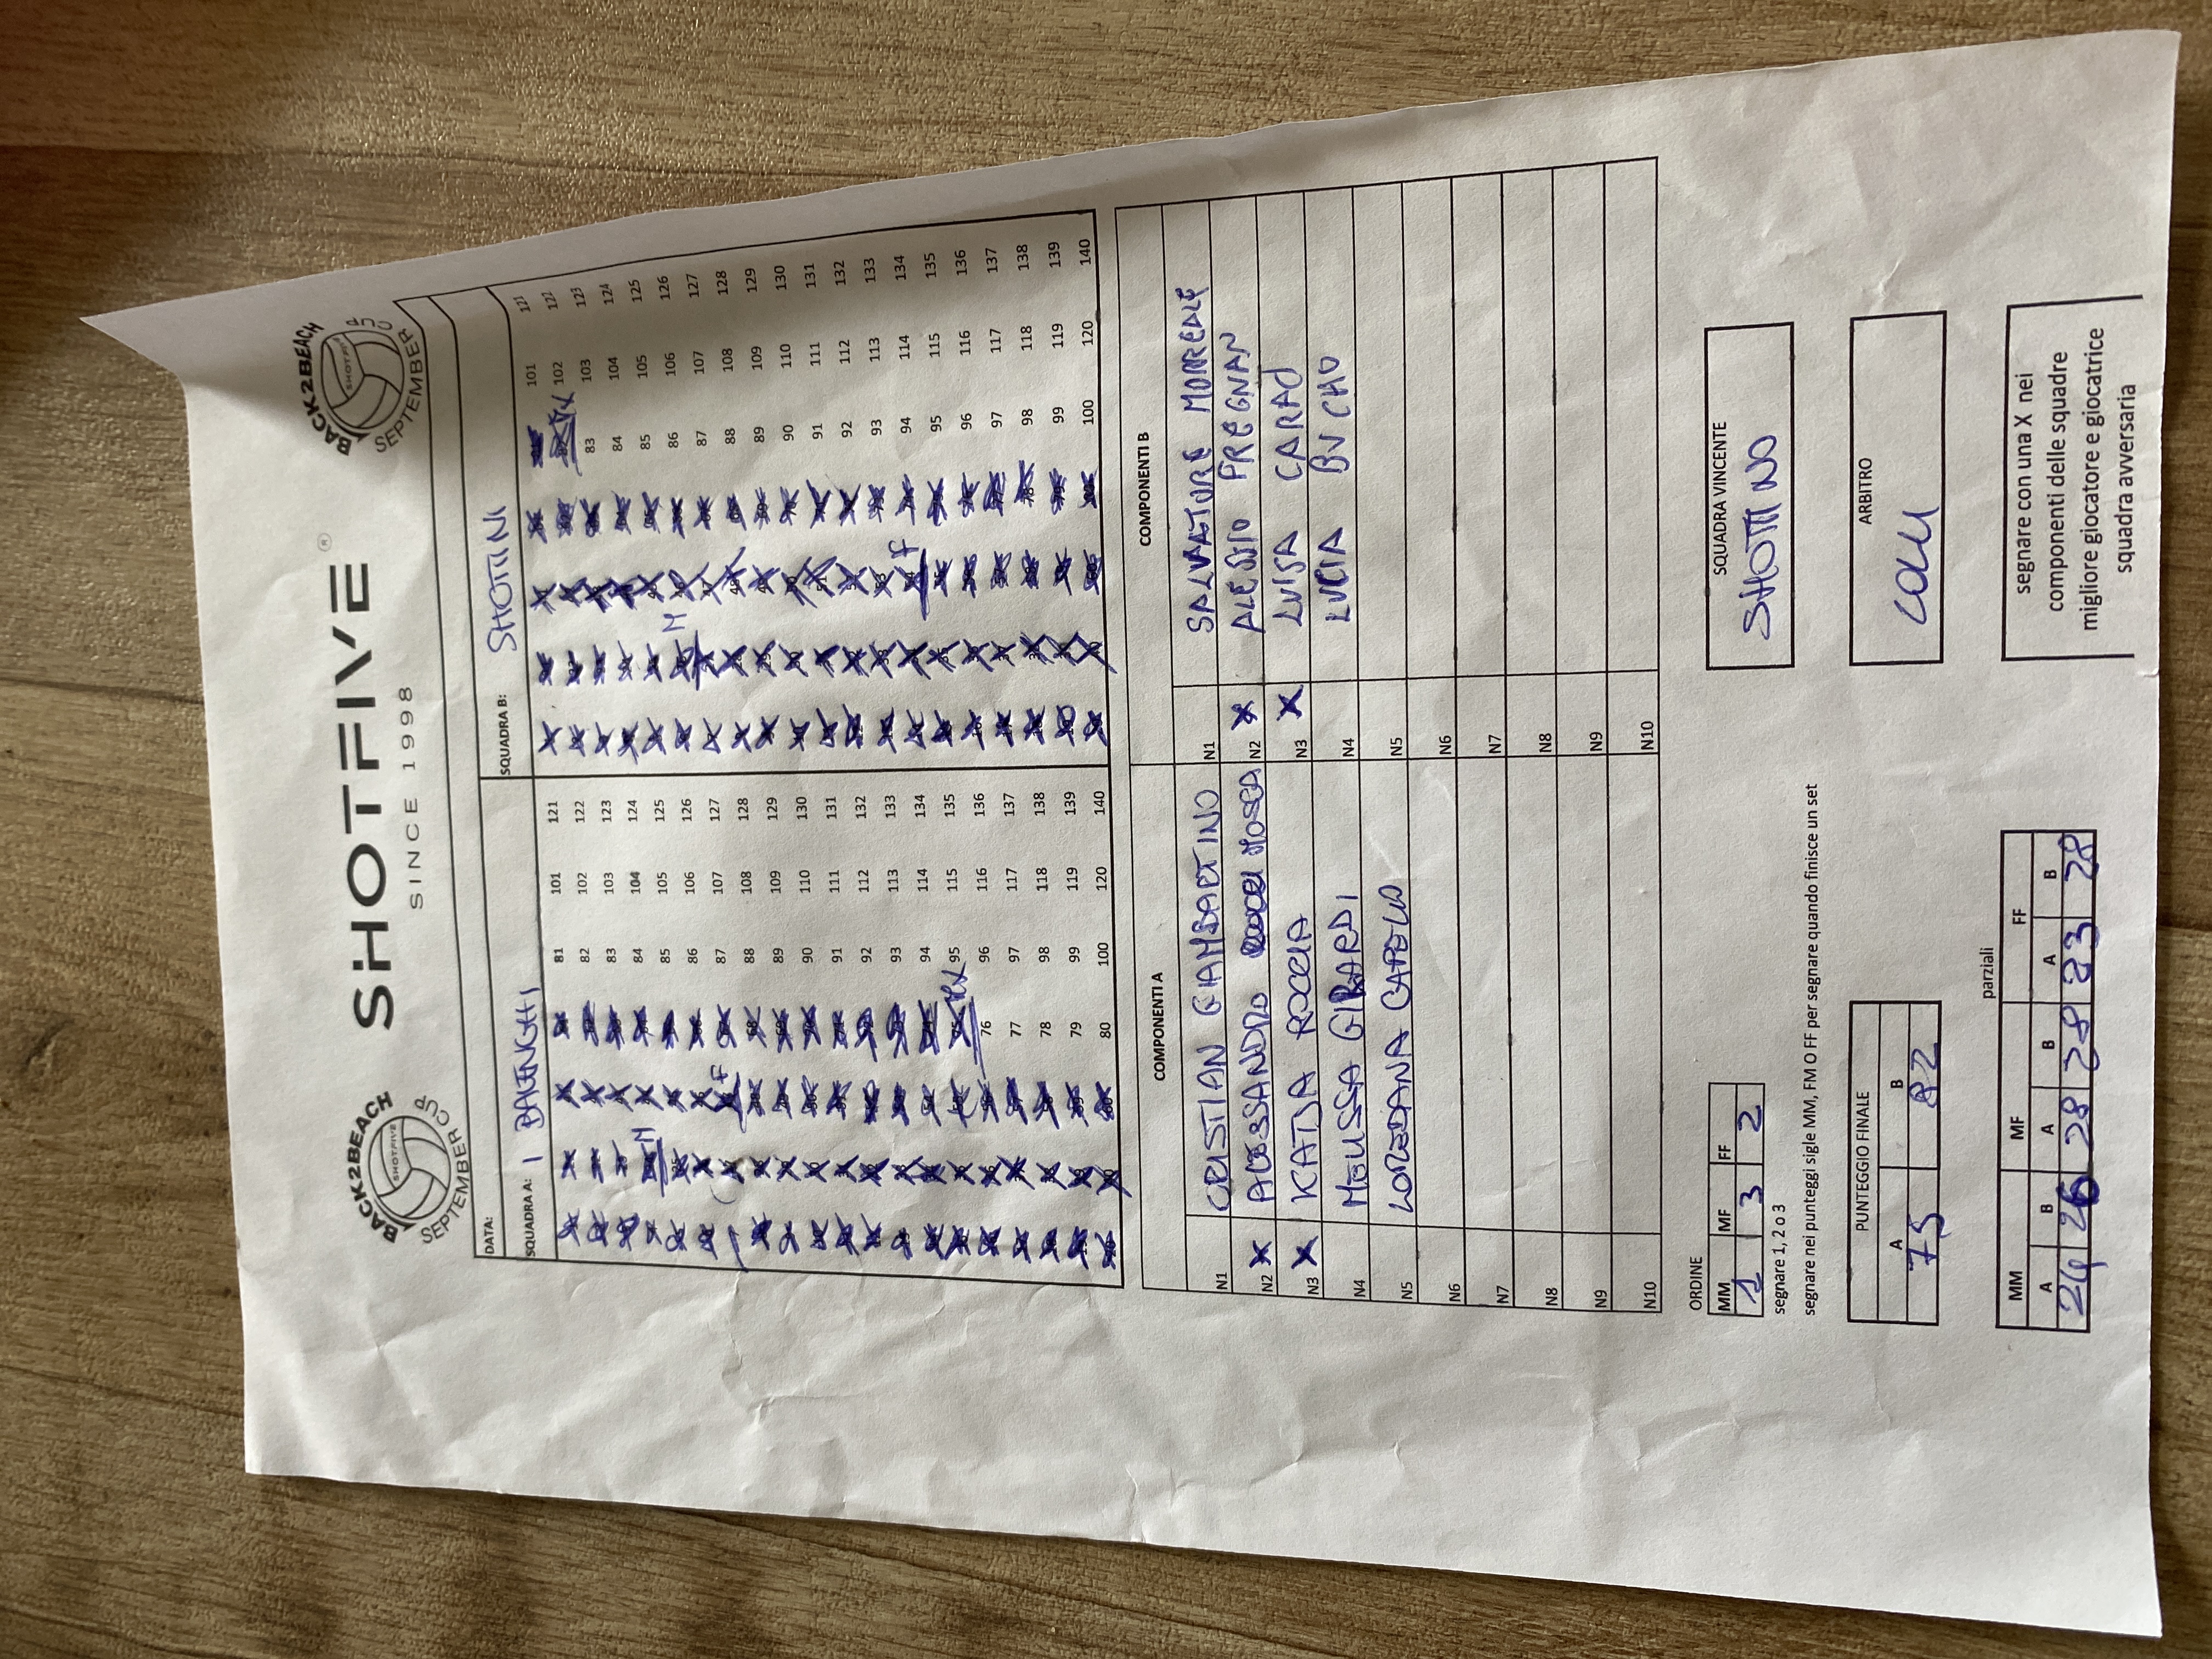 BACK2BEACH
SHOTFIVE
SEPTEMBER CUP
SHOTFIVE®
SINCE 1998
BACK2BEACH
SHOTFIVE
SEPTEMBER
DATA:
SQUADRA A: I BALENGHI
SQUADRA B: SHOTINI
81 101 121
82 102 122
83 103 123
84 104 124
85 105 125
86 106 126
87 107 127
88 108 128
89 109 129
90 110 130
91 111 131
92 112 132
93 113 133
94 114 134
95 115 135
76 96 116 136
77 97 117 137
78 98 118 138
79 99 119 139
80 100 120 140
M
F
101 121
102 122
83 103 123
84 104 124
85 105 125
86 106 126
87 107 127
88 108 128
89 109 129
90 110 130
91 111 131
92 112 132
93 113 133
94 114 134
95 115 135
96 116 136
97 117 137
98 118 138
99 119 139
100 120 140
M
F
COMPONENTI A
COMPONENTI B
N1 CRISTIAN GIAMBARTINO N1 SALVATORE MORREALE
N2 X ALESSANDRO MOSCA N2 X ALESSIO PREGNAN
N3 X KATJA ROCCIA N3 X LUISA CARAD
N4 MELISSA GIRARDI N4 LUCIA BUCHO
N5 LOREDANA CAPELLO N5
N6 N6
N7 N7
N8 N8
N9 N9
N10 N10
ORDINE
MM MF FF
1 3 2
segnare 1, 2 o 3
segnare nei punteggi sigle MM, FM O FF per segnare quando finisce un set
SQUADRA VINCENTE
SHOTTINO
PUNTEGGIO FINALE
A B
75 82
ARBITRO
parziali
MM MF FF
A B A B A B
24 26 28 28 23 28
segnare con una X nei
componenti delle squadre
migliore giocatore e giocatrice
squadra avversaria